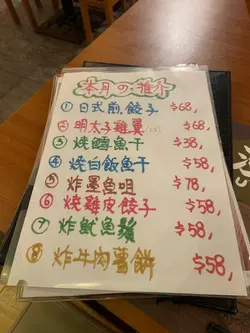 本月の推介
① 日式煎餃子 $68,
② 明太子雞翼 $68,
③ 燒鱈魚干 $38,
④ 燒白飯魚干 $58,
⑤ 炸墨魚咀 $78,
⑥ 燒雞皮餃子 $58,
⑦ 炸魷魚鬚 $58,
⑧ 炸牛肉薯餅 $58,